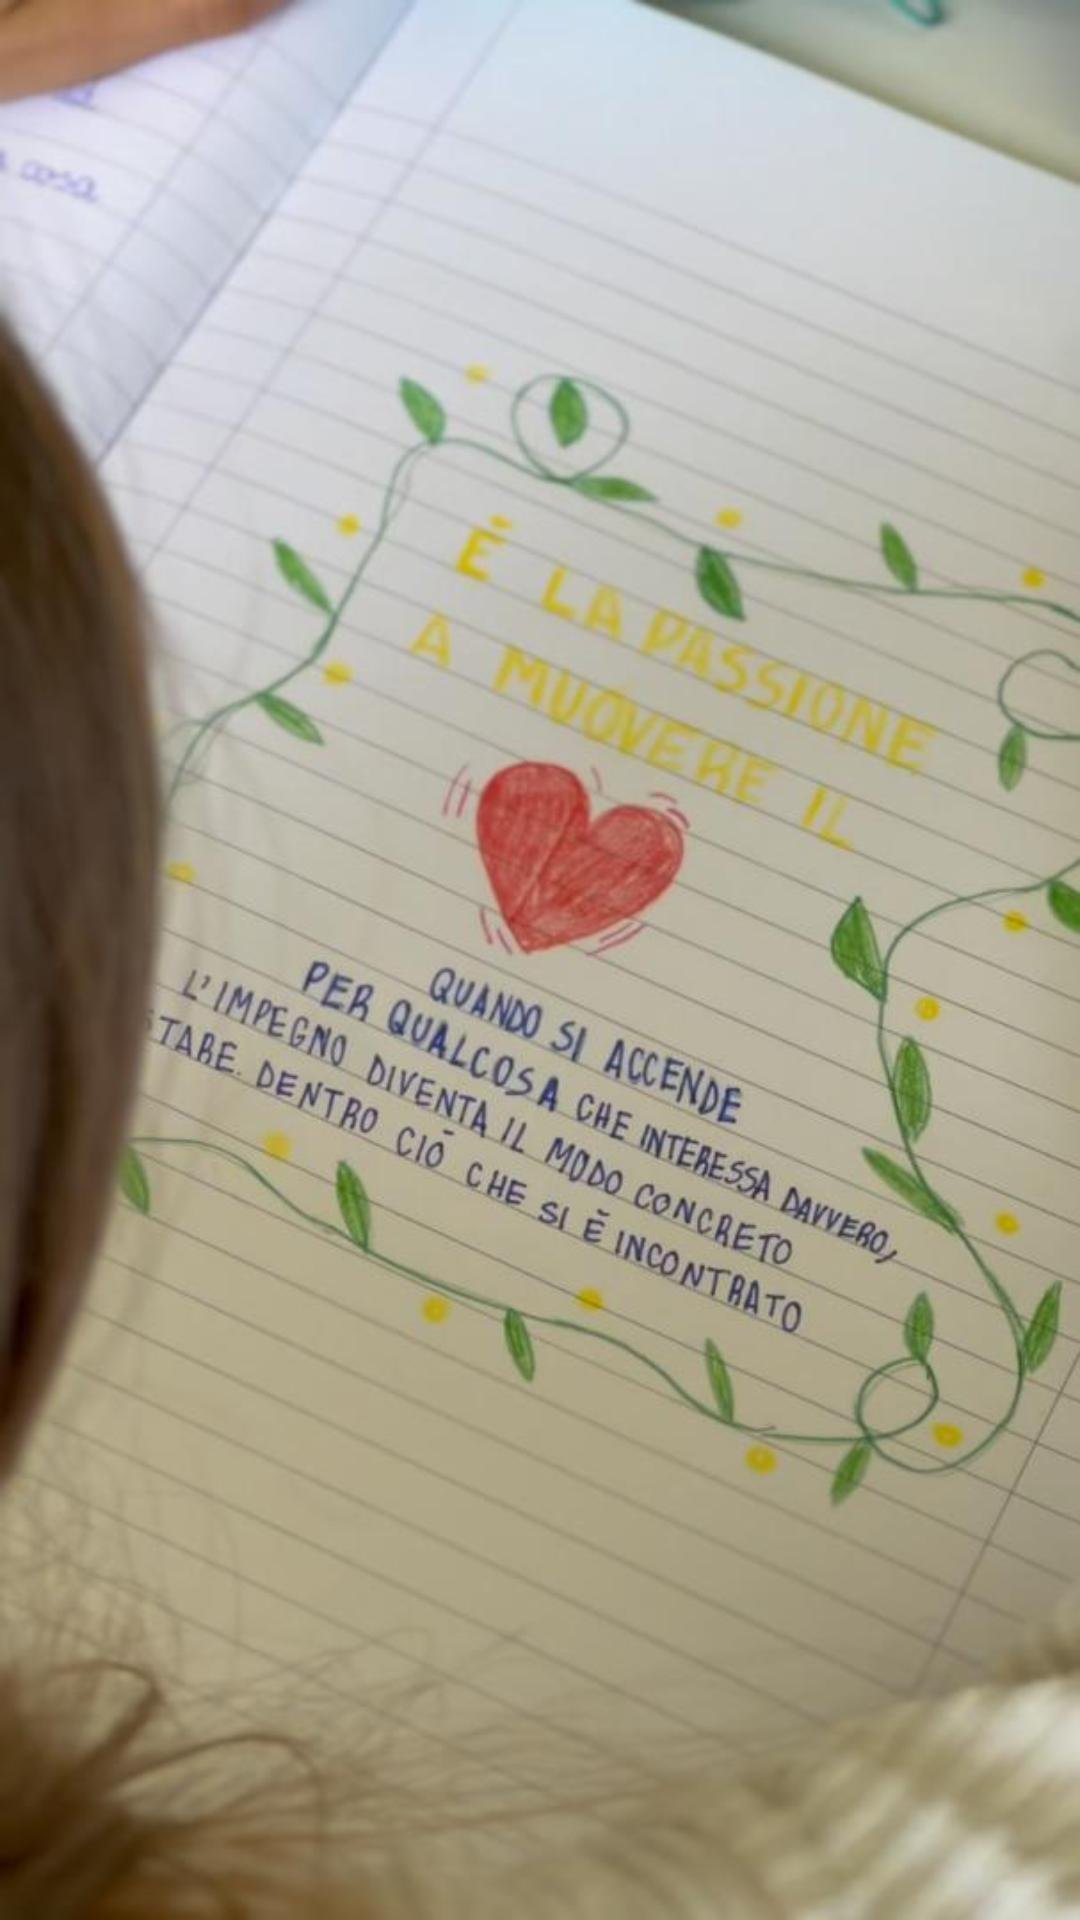 cosa
È LA PASSIONE
A MUOVERE IL
QUANDO SI ACCENDE
PER QUALCOSA CHE INTERESSA DAVVERO,
L'IMPEGNO DIVENTA IL MODO CONCRETO
STARE DENTRO CIÒ CHE SI È INCONTRATO